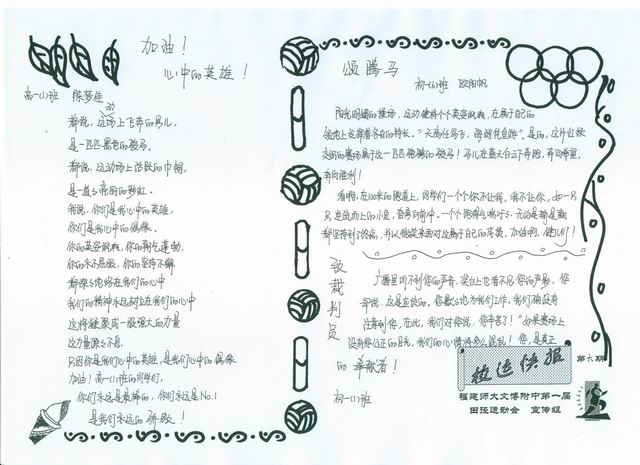 加油！
心中的英雄！
高一(1)班 陈梦佳
都说，这运动场上飞奔的男儿，
是一匹匹黑色的骏马。
都说，这运动场上活跃的巾帼，
是一道道亮丽的彩虹。
我说，你们是我心中的英雄，
你们是我心中的偶像。
你们的英姿飒爽，你们的朝气蓬勃，
你们的永不屈服，你们的坚持不懈
都深深地烙在我们的心中
我们的精神永远对位在我们的心中
这将凝聚成一股强大的力量
这力量源源不息
只因你是我们心中的英雄，是我们心中的偶像
加油！高一(1)班的同学们，
你们永远是最棒的，你们永远是No.1
是我们永远的骄傲！
颂腾马
初一(1)班 欧阳帆
阳光明媚的操场，运动健将个个英姿飒爽，在属于自己的
领地上发挥着各自的特长。“天高任鸟飞，海阔凭鱼跃”，是的，这片
的赛场属于这一匹匹腾腾的骏马！马儿在蓝天白云下奔跑，奔向希望，
奔向胜利！
看啊，在100米的跑道上，同学们一个个你不让我，我不让你，如一只
只
都坚持到了终点，并以微笑来面对这属于自己的荣誉。加油啊，健儿们！
致裁判员
广播里听不到你的声音，奖台上也看不见你的身影，您
却说，这是应该的，你默默地为我们工作，我们确没有
注意到你，在此，我们对你说，你辛苦了！“如果赛场上
没有你公正的目光，我们的心情将多么混乱！您，是真正
的奉献者！
初一(1)班
校运快报
第六期
福建师大文博附中第一届
田径运动会 宣传组